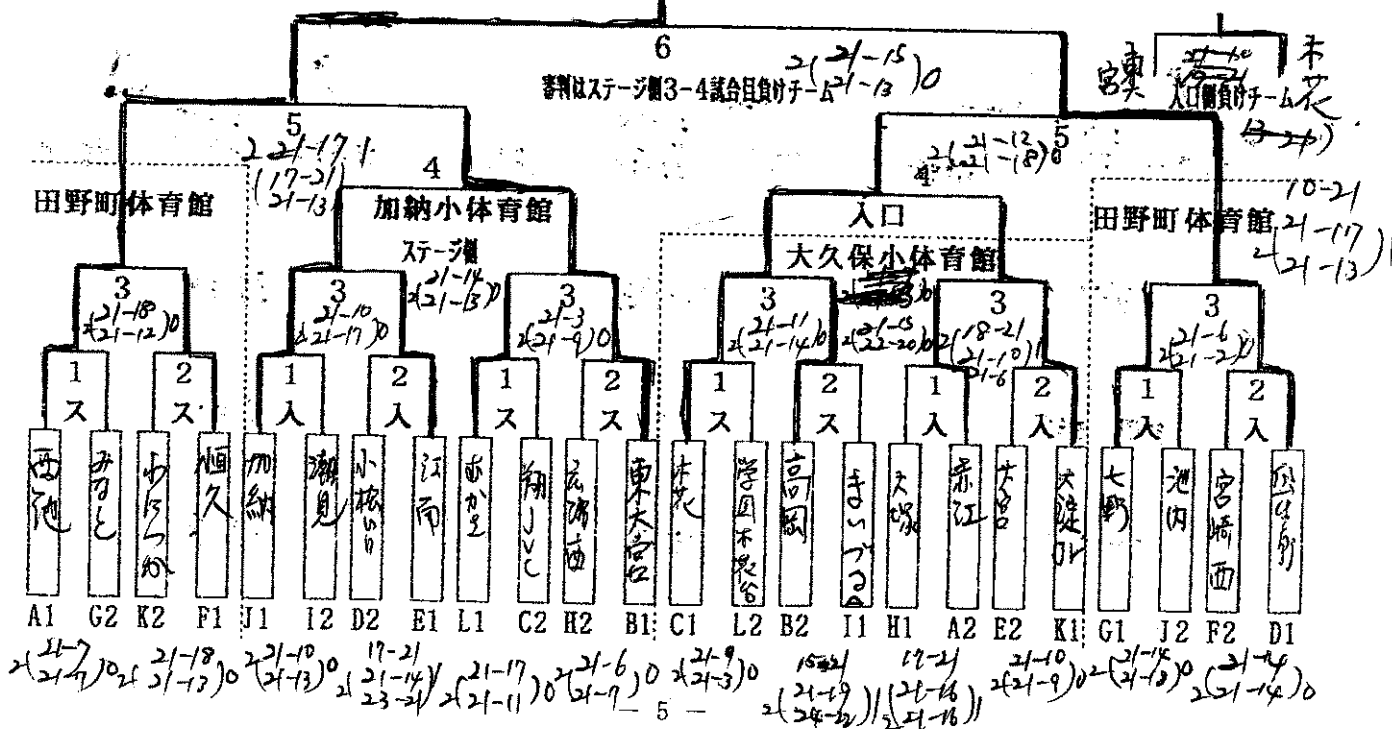 6
2(21-15
21-13)0
審判はステージ側3-4試合目負けチーム
東
宮
木花
入口側負けチーム
5
2 21-17 1
(17-21)
21-13
5
2(21-12
21-18)0
4
4
田野町体育館
加納小体育館
ステージ側
2(21-14
21-13)0
入口
大久保小体育館
田野町体育館
10-21
2(21-17
21-13)1
3
2(21-18
21-12)0
3
21-10
21-17)0
3
2(21-3
21-9)0
3
2(21-11
21-14)0
2(21-15
22-20)0
3
2(18-21
21-10)1
21-6
3
2(21-6
21-2)0
1 2 1 2 1 2 1 2 1 2 1 2
ス ス 入 入 ス ス ス ス 入 入 入 入
西池 みなと わにつか 恒久 加納 潮見 小松台 江南 翔JVC 東大宮 木花 学園木花台 高岡 きいづろ 大塚 赤江 大宮 大淀 七野 池内 宮崎西
A1 G2 K2 F1 J1 I2 D2 E1 L1 C2 H2 B1 C1 L2 B2 I1 H1 A2 E2 K1 G1 J2 F2 D1
2(21-7
21-7)0
2(21-18
21-13)0
2(21-10
21-13)0
17-21
2(21-14
23-21)1
2(21-17
21-11)0
2(21-6
21-7)0
2(21-9
21-3)0
15-21
2(21-19
24-22)1
17-21
2(21-16
21-16)1
2(21-10
21-9)0
2(21-14
21-18)0
2(21-14
21-14)0
— 5 —